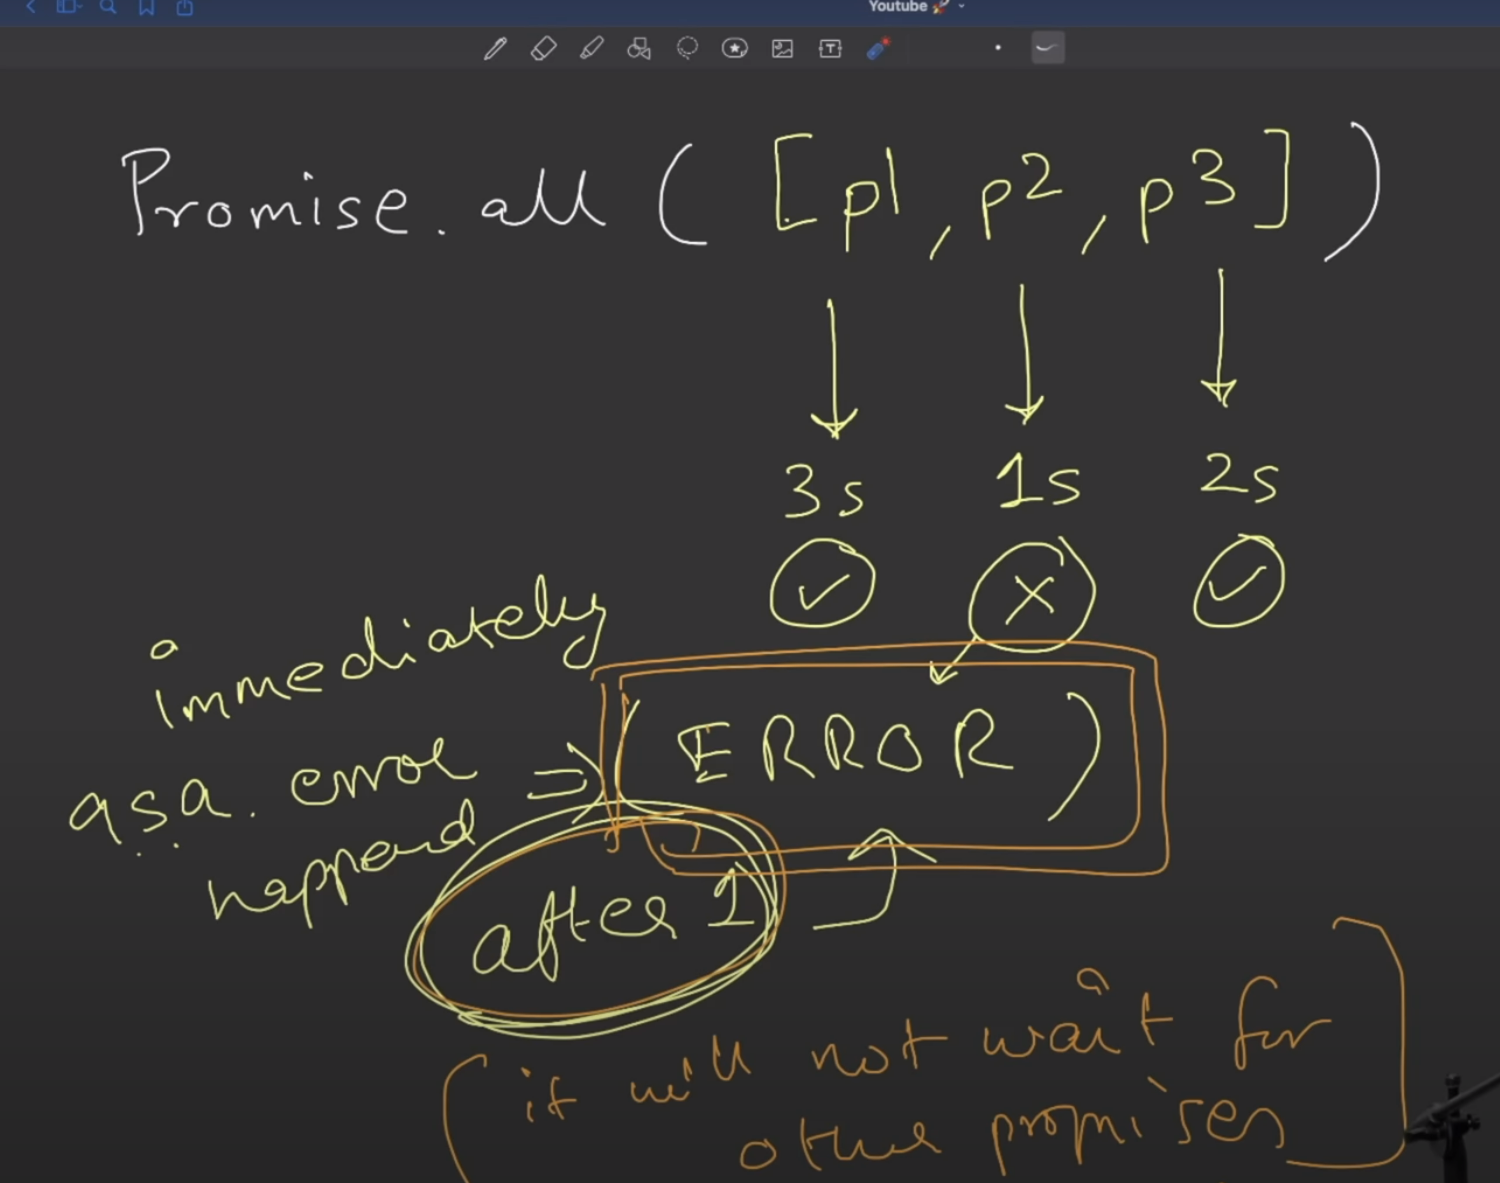 Youtube 🚀
Promise.all ( [ p1, p2, p3 ] )
3s 1s 2s
immediately
asa. error
happend
⇒ ( ERROR )
after 1
( it will not wait for
other promises